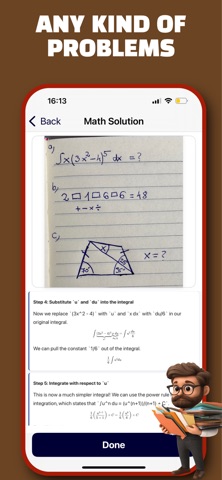 ANY KIND OF
PROBLEMS
16:13
Back
Math Solution
a)
∫x(3x²-4)⁵ dx = ?
b)
2□1□6□6=48
+ - × ÷
c)
x
x=?
Step 4: Substitute `u` and `du` into the integral
Now we replace `(3x^2 - 4)` with `u` and `x dx` with `du/6` in our
original integral.
We can pull the constant `1/6` out of the integral.
Step 5: Integrate with respect to `u`
This is now a much simpler integral! We can use the power rule
integration, which states that `∫u^n du = (u^(n+1))/(n+1) + C`
Done